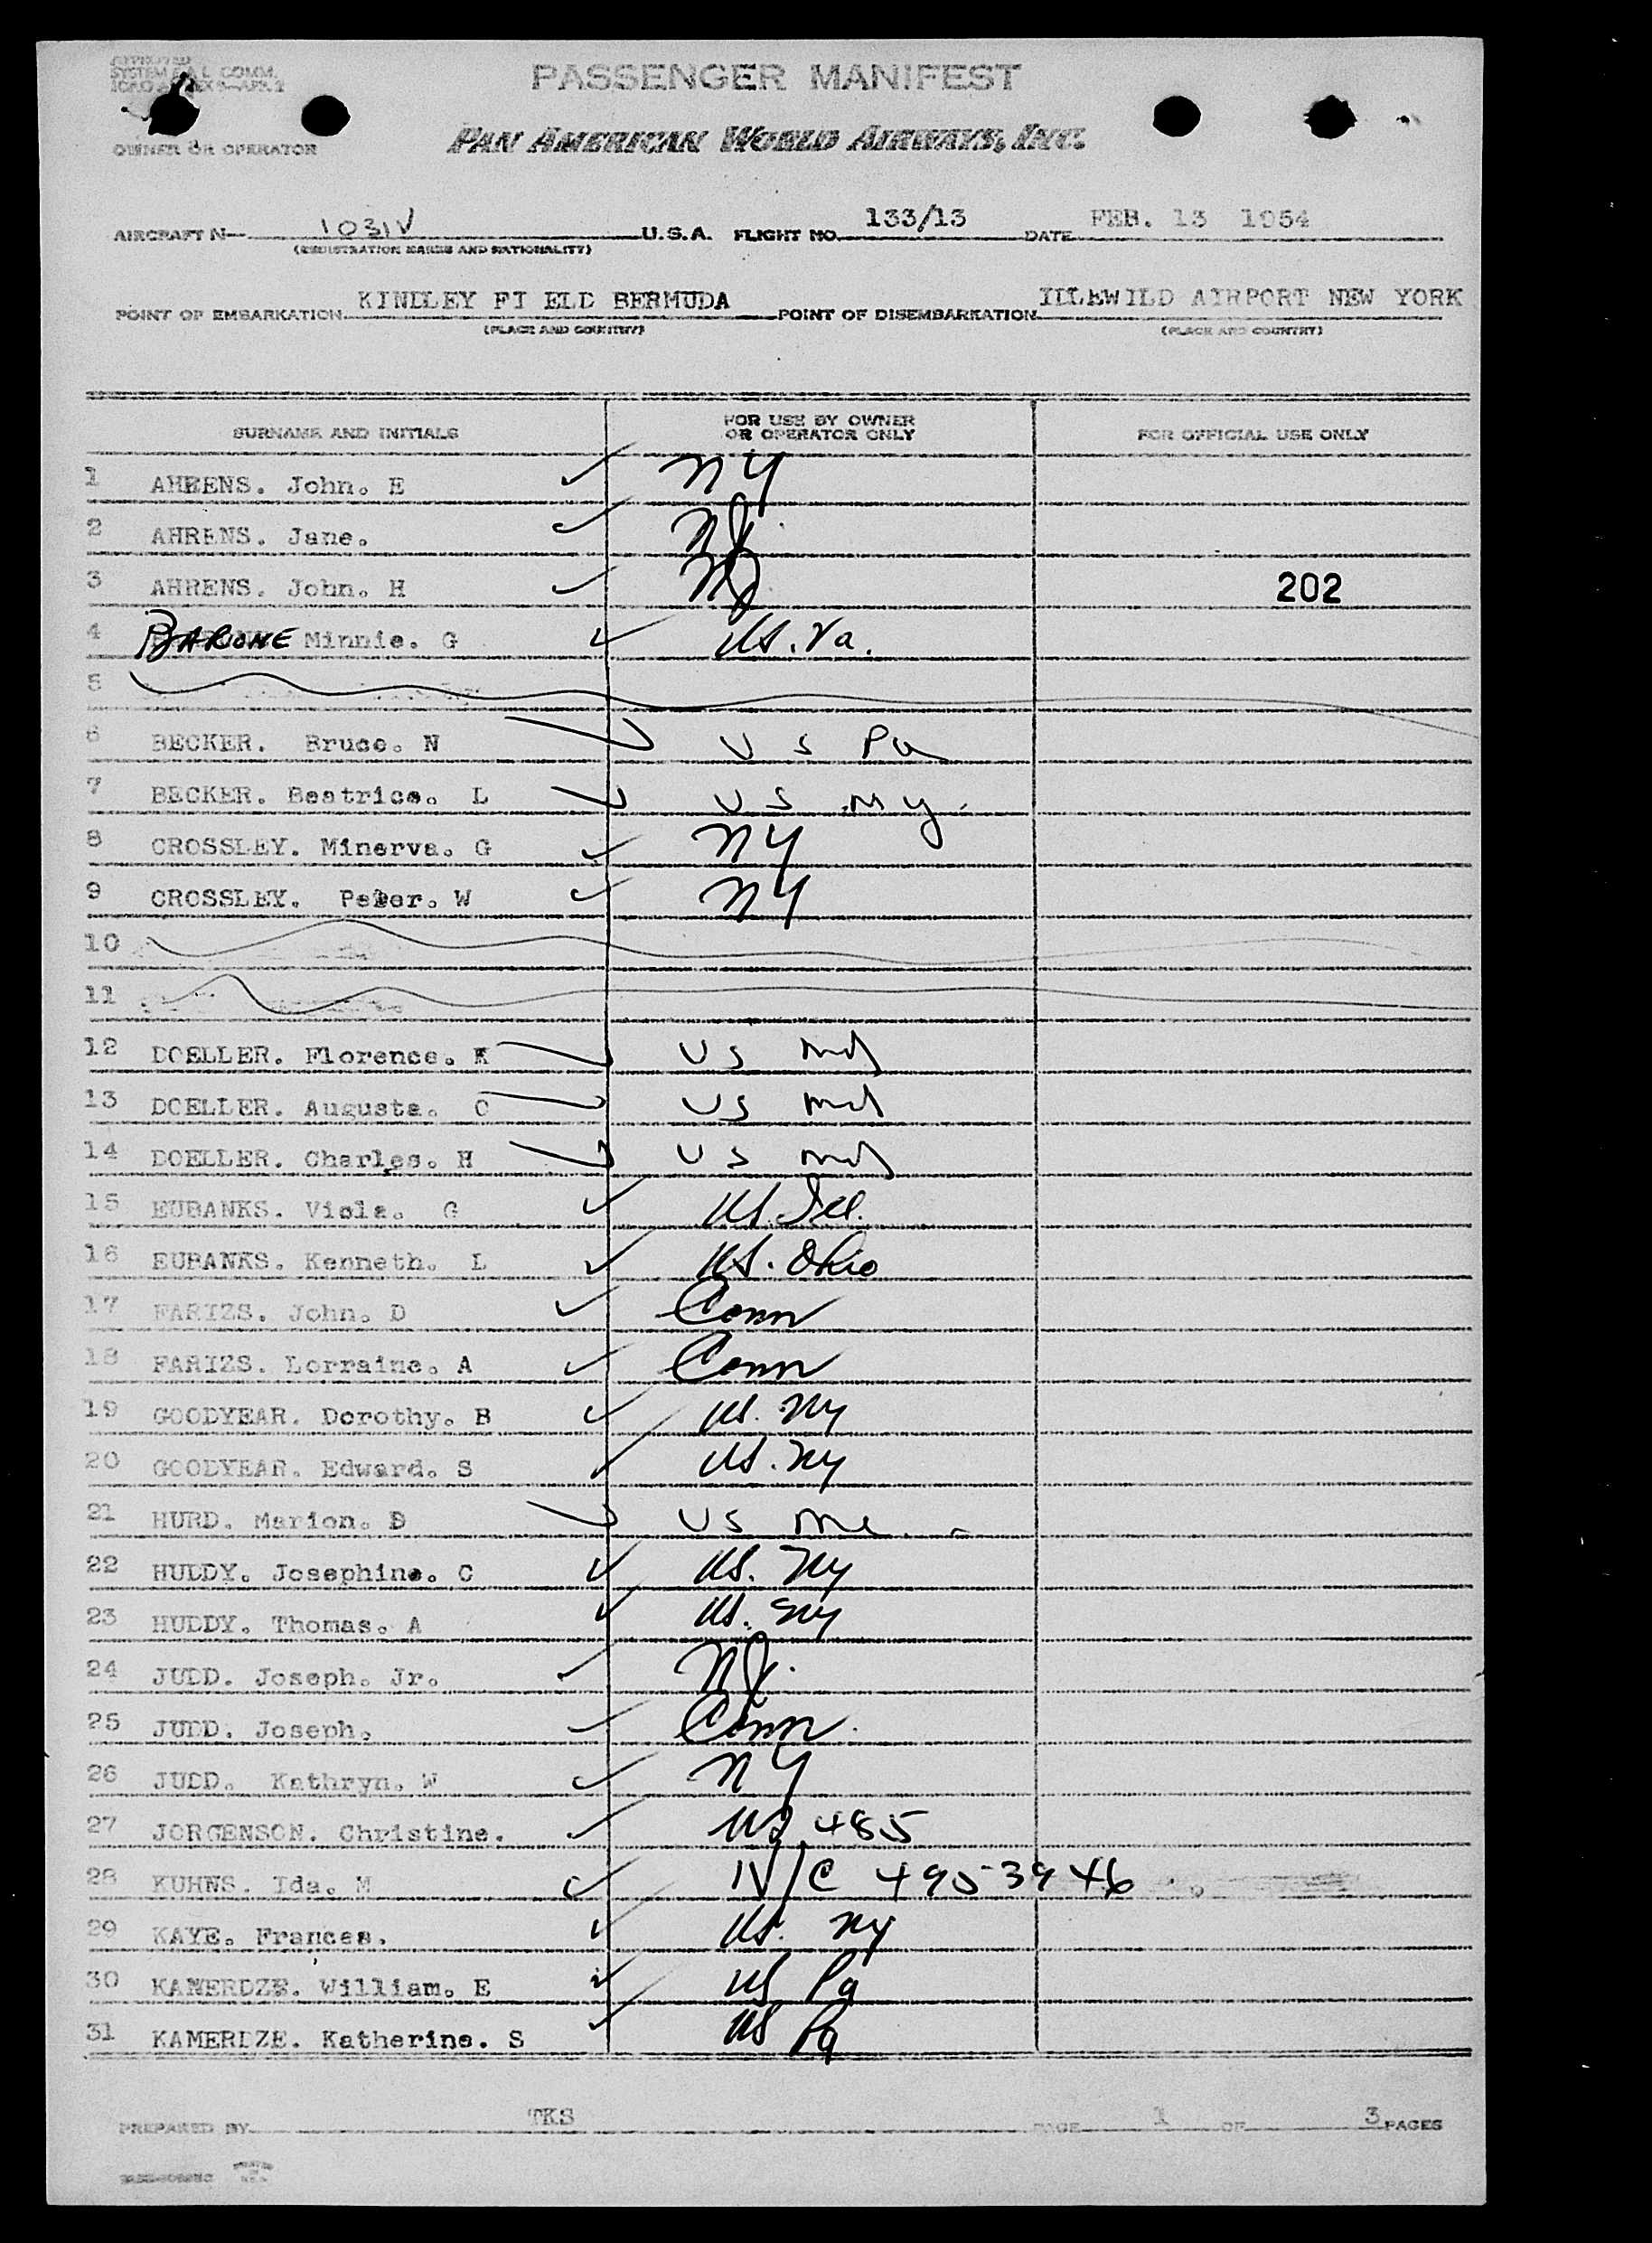 APPROVED
SYSTEM COMM.
PASSENGER MANIFEST
OWNER OR OPERATOR
PAN AMERICAN WORLD AIRWAYS, INC.
AIRCRAFT N— 1031V U.S.A. FLIGHT NO. 133/13 DATE FEB. 13 1954
(REGISTRATION MARKS AND NATIONALITY)
POINT OF EMBARKATION KINDLEY FI ELD BERMUDA POINT OF DISEMBARKATION IDLEWILD AIRPORT NEW YORK
(PLACE AND COUNTRY) (PLACE AND COUNTRY)
SURNAME AND INITIALS FOR USE BY OWNER OR OPERATOR ONLY FOR OFFICIAL USE ONLY
1 AHRENS. John. E ✓ NY
2 AHRENS. Jane. ✓ NJ.
3 AHRENS. John. H ✓ NJ. 202
4 BARONE Minnie. G ✓ US. Va.
5
6 BECKER. Bruce. N US Pa
7 BECKER. Beatrice. L US NY.
8 CROSSLEY. Minerva. G ✓ NY
9 CROSSLEY. Peter. W ✓ NY
10
11
12 DOELLER. Florence. K US Md
13 DOELLER. Augusta. C US Md
14 DOELLER. Charles. H US Md
15 EUBANKS. Viola. G ✓ US. Ill.
16 EUBANKS. Kenneth. L ✓ US. Ohio
17 FARIZS. John. D ✓ Conn
18 FARIZS. Lorraine. A ✓ Conn
19 GOODYEAR. Dorothy. B ✓ US. NY
20 GOODYEAR. Edward. S ✓ US. NY
21 HURD. Marion. D US Me.
22 HUDDY. Josephine. C ✓ US. NY
23 HUDDY. Thomas. A ✓ US. NY
24 JUDD. Joseph. Jr. ✓ NJ.
25 JUDD. Joseph. ✓ Conn.
26 JUDD. Kathryn. W ✓ NY
27 JORGENSON. Christine. ✓ 485
28 KUHNS. Ida. M ✓ N/C 4953946
29 KAYE. Frances. ✓ US. NY
30 KAMERDZE. William. E ✓ US Pa
31 KAMERDZE. Katherine. S ✓ US Pa
PREPARED BY TKS PAGE 1 OF 3 PAGES